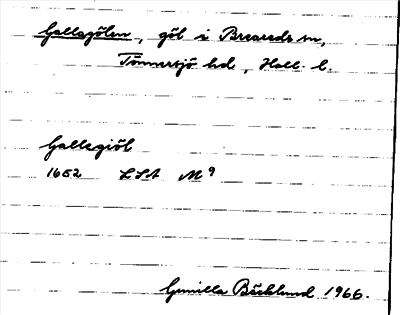 Gallagölen, göl i Breareds sn,
Tönnersjö hd, Hall. l.
Gallagiöl
1652 LSA M⁹
Gunilla Bäcklund 1966.